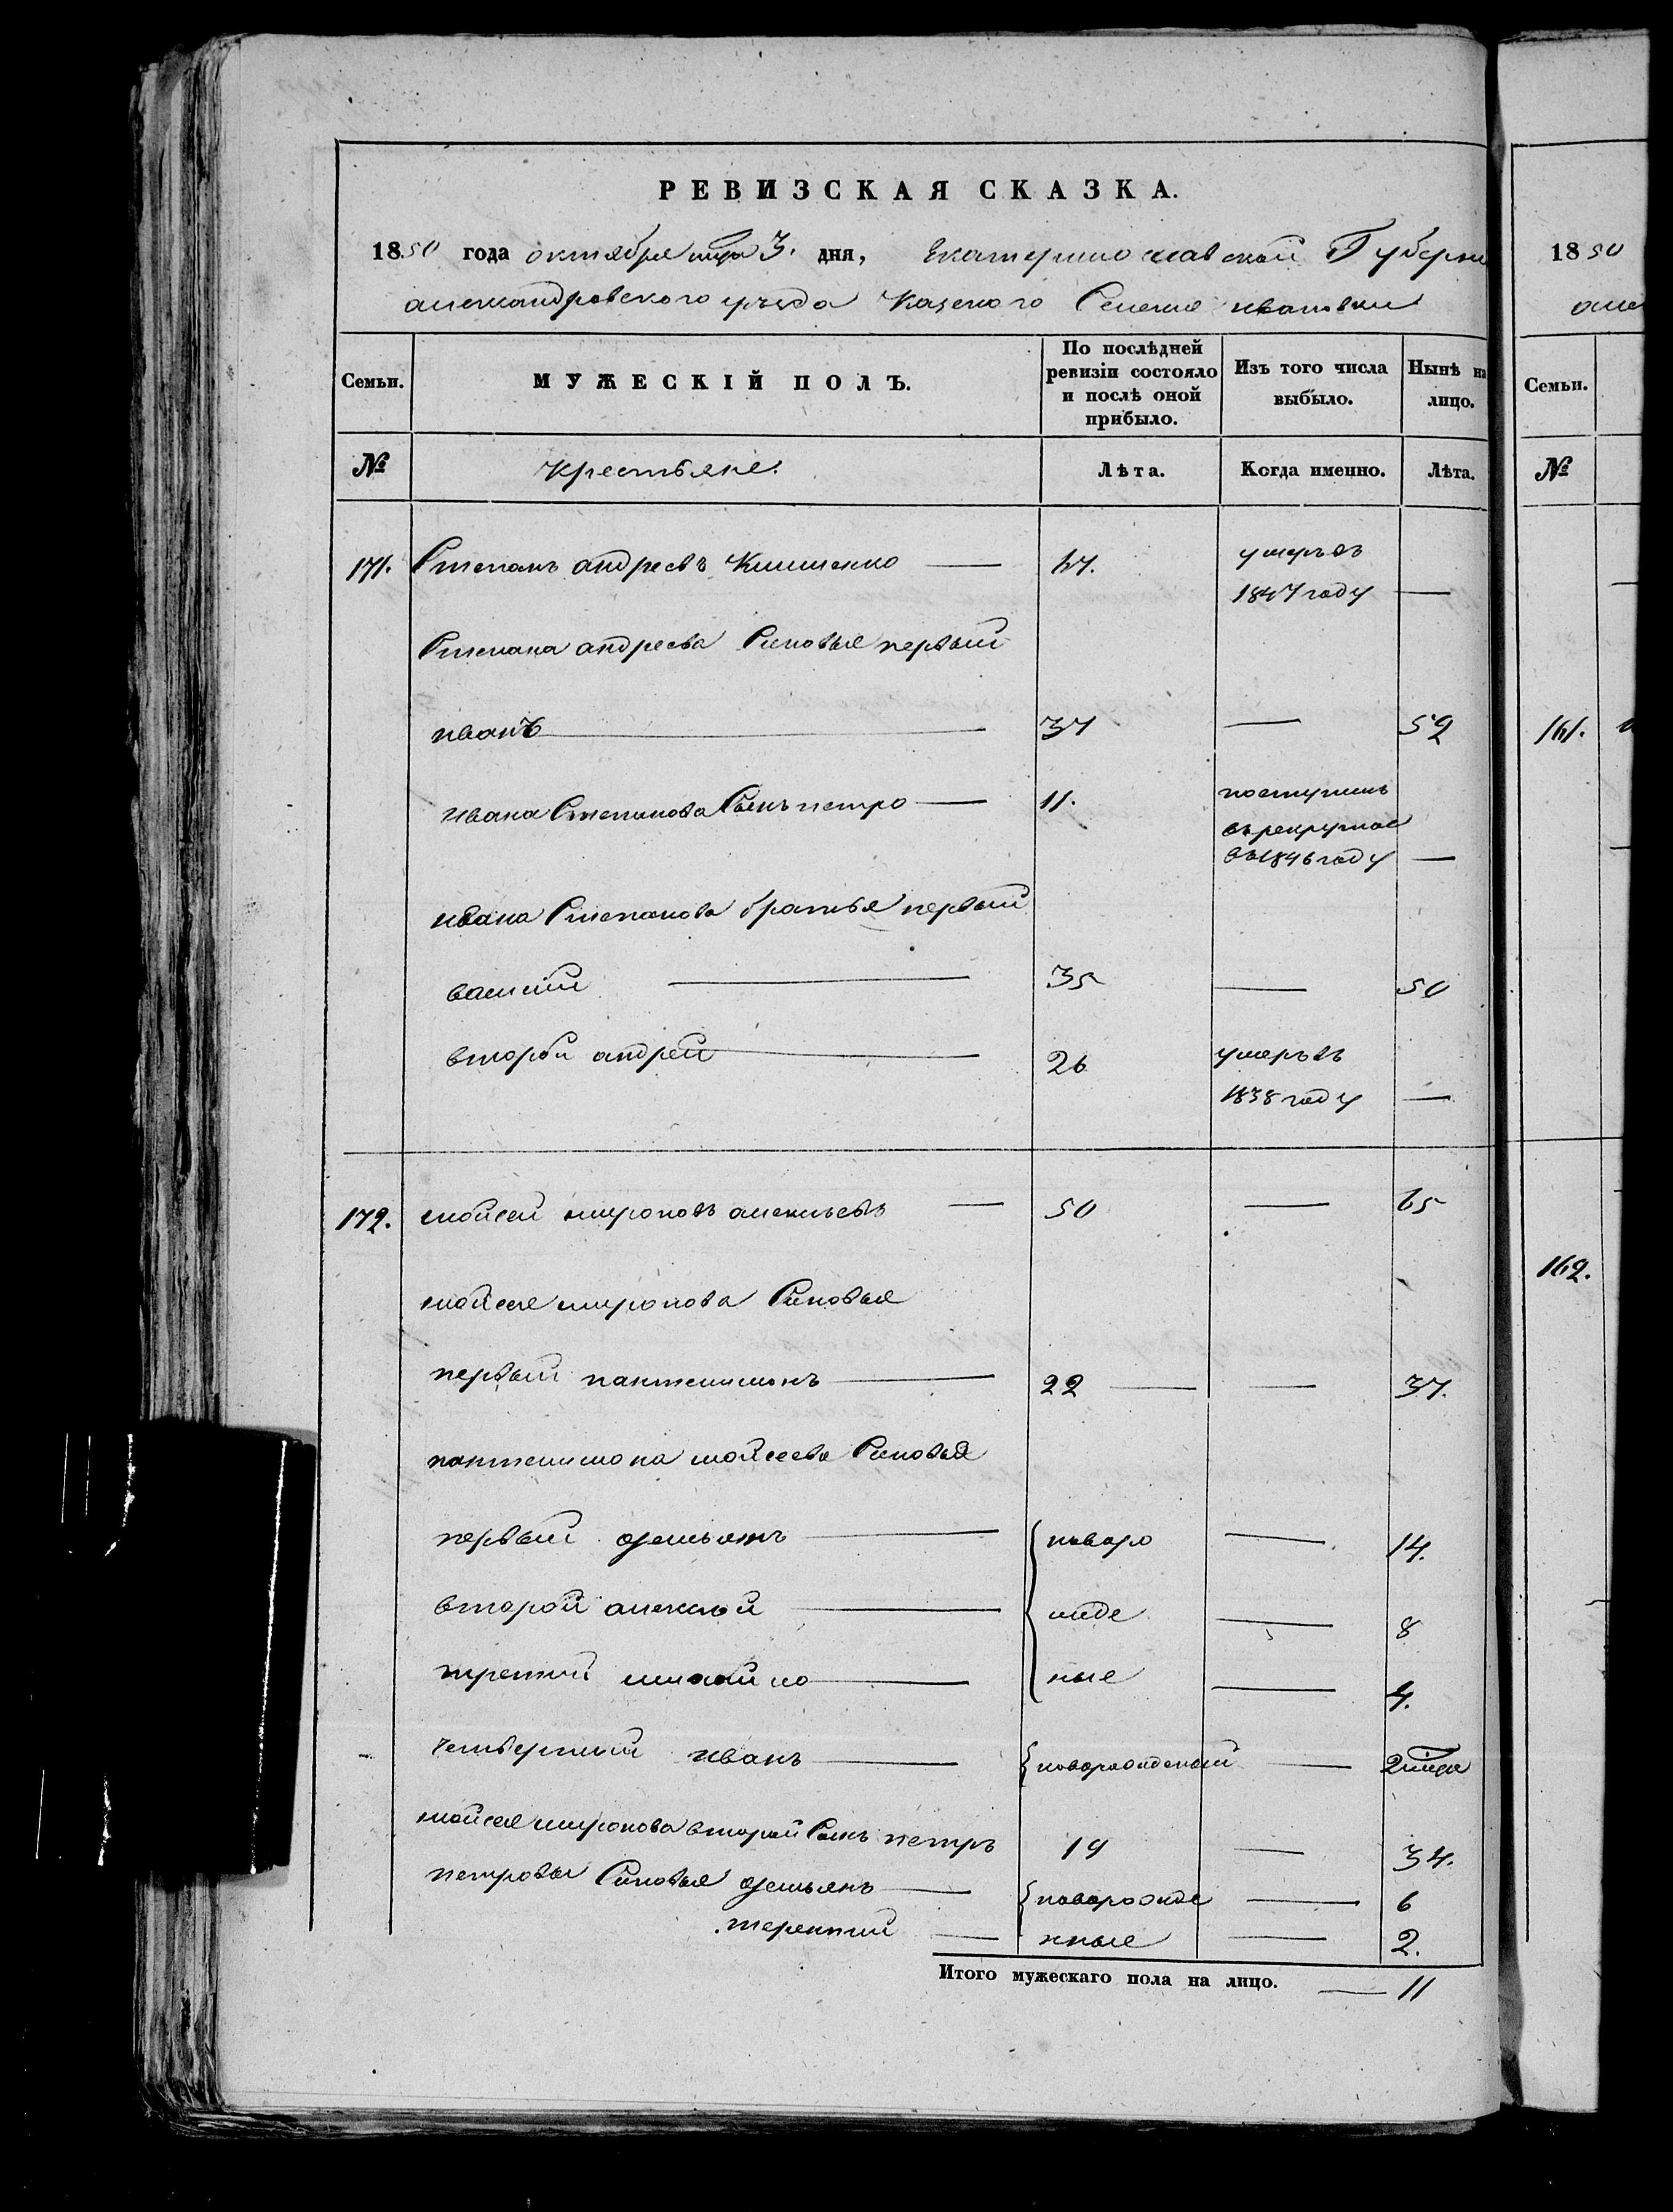 РЕВИЗСКАЯ СКАЗКА.
1850 года октября мца 3. дня, Екатеринославской Губерни
александровского уезда Казеного Селения ивановки
Семьи.
МУЖЕСКІЙ ПОЛЪ.
По послѣдней ревизіи состояло и послѣ оной прибыло.
Изъ того числа выбыло.
Нынѣ на лицо.
№
крестьяне.
Лѣта.
Когда именно.
Лѣта.
171. Степанъ андреевъ — 67. умеръ въ
1847 году —
Степана андреева Синовья первый
иванъ — 37 — 52
ивана Степанова Сынъ петро — 11. поступилъ
въ рекруты
въ 1846 году —
ивана Степанова братья первый
василий — 35 — 50
второй андрей — 26 умеръ въ
1838 году —
172. мойсей мироновъ алексеевъ — 50 — 65
мойсея миронова Синовья
первый пантелимонъ — 22 — — 37.
пантелимона мойсеева Синовья
первый демьянъ — новоро — 14.
второй алексей — жде — 8
третий михайло — ные — 4.
четвертый иванъ — новорожденый — 2 мца
мойсея миронова второй Сынъ петръ 19 — 34.
петровы Синовья демьянъ — новорожде — 6
терентий — нные — 2.
Итого мужескаго пола на лицо. — 11
1850
але
Семьи.
№
161.
162.